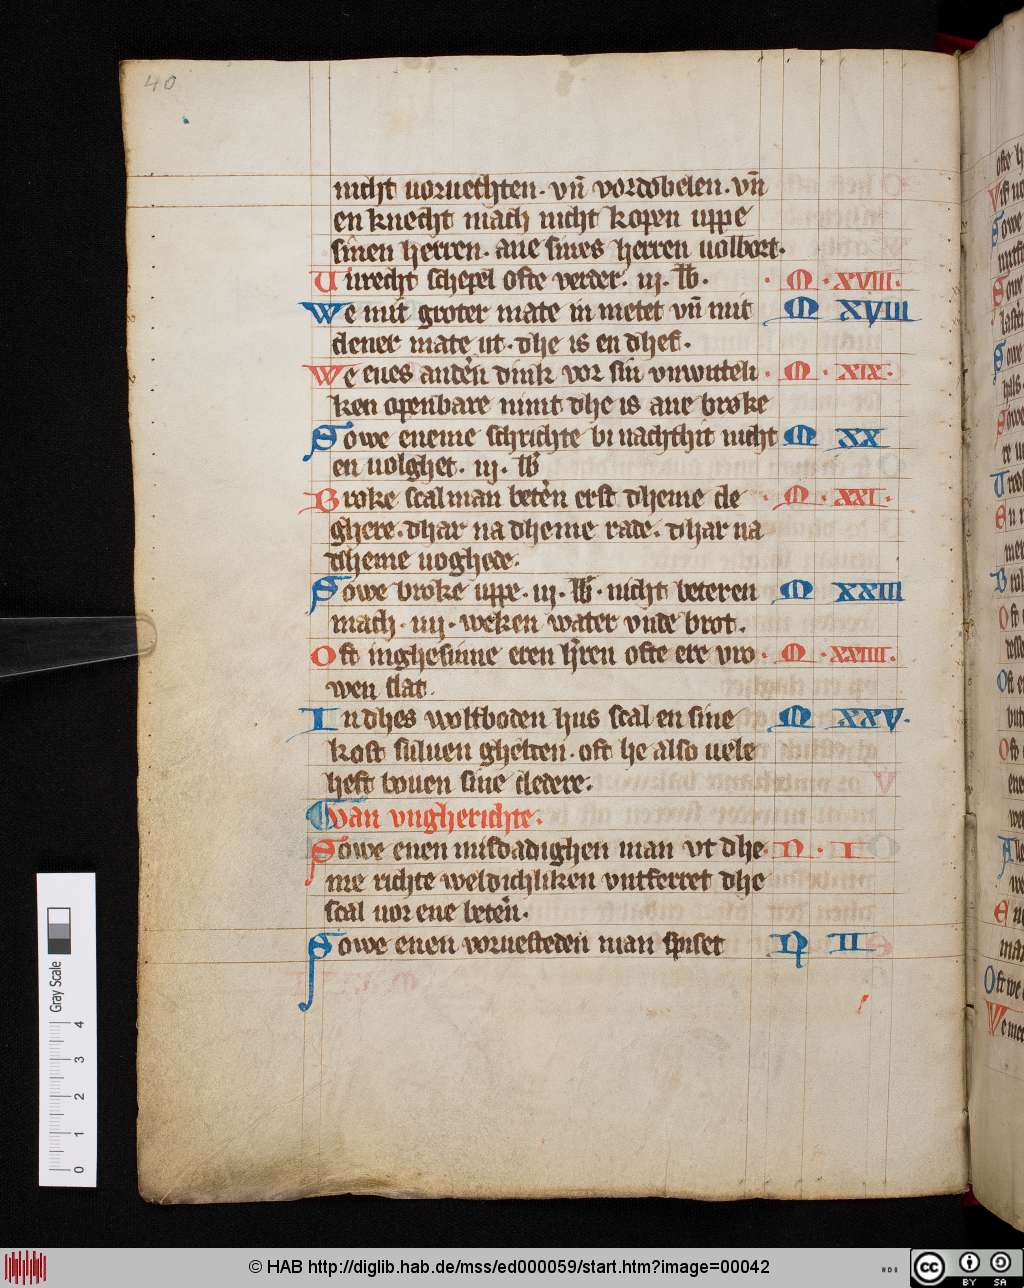 40
nicht uoruechten. vn̄ vordobelen. vn̄
en knecht mach nicht kopen uppe
sinen herren. ane sines herren uolbort.
Unrecht schepel ofte verder. iij. lb. M. XVIII.
We mit groter mate in metet vn̄ mit M XVIII
clener mate ut. dhe is en dhef.
We enes anders dink vor sin vnwitteli M. XIX.
ken openbare nimt dhe is ane broke
Sowe eneme schrichte bi nachthit nicht M XX
en uolghet. iij. lb
Broke scalman beteren erst dheme cle M. XXI.
ghere. dhar na dheme rade. dhar na
dheme uoghede.
Sowe broke uppe. iij. lb. nicht beteren M XXIII
mach. iiij. weken water vnde brot.
Oft inghesinne eren h'ren ofte ere vro M. XXIIII.
wen slat.
In dhes woltboden hus scal en sine M XXV.
kost suluen ghelten. oft he also uele
heft bouen sine cledere.
Van vngherichte.
Sowe enen misdadighen man vt dhe N. I
me richte weldichliken untferret dhe
scal uor ene beteren.
Sowe enen voruesteden man spiset N II
Gray Scale
0 1 2 3 4
© HAB http://diglib.hab.de/mss/ed000059/start.htm?image=00042
cc BY SA